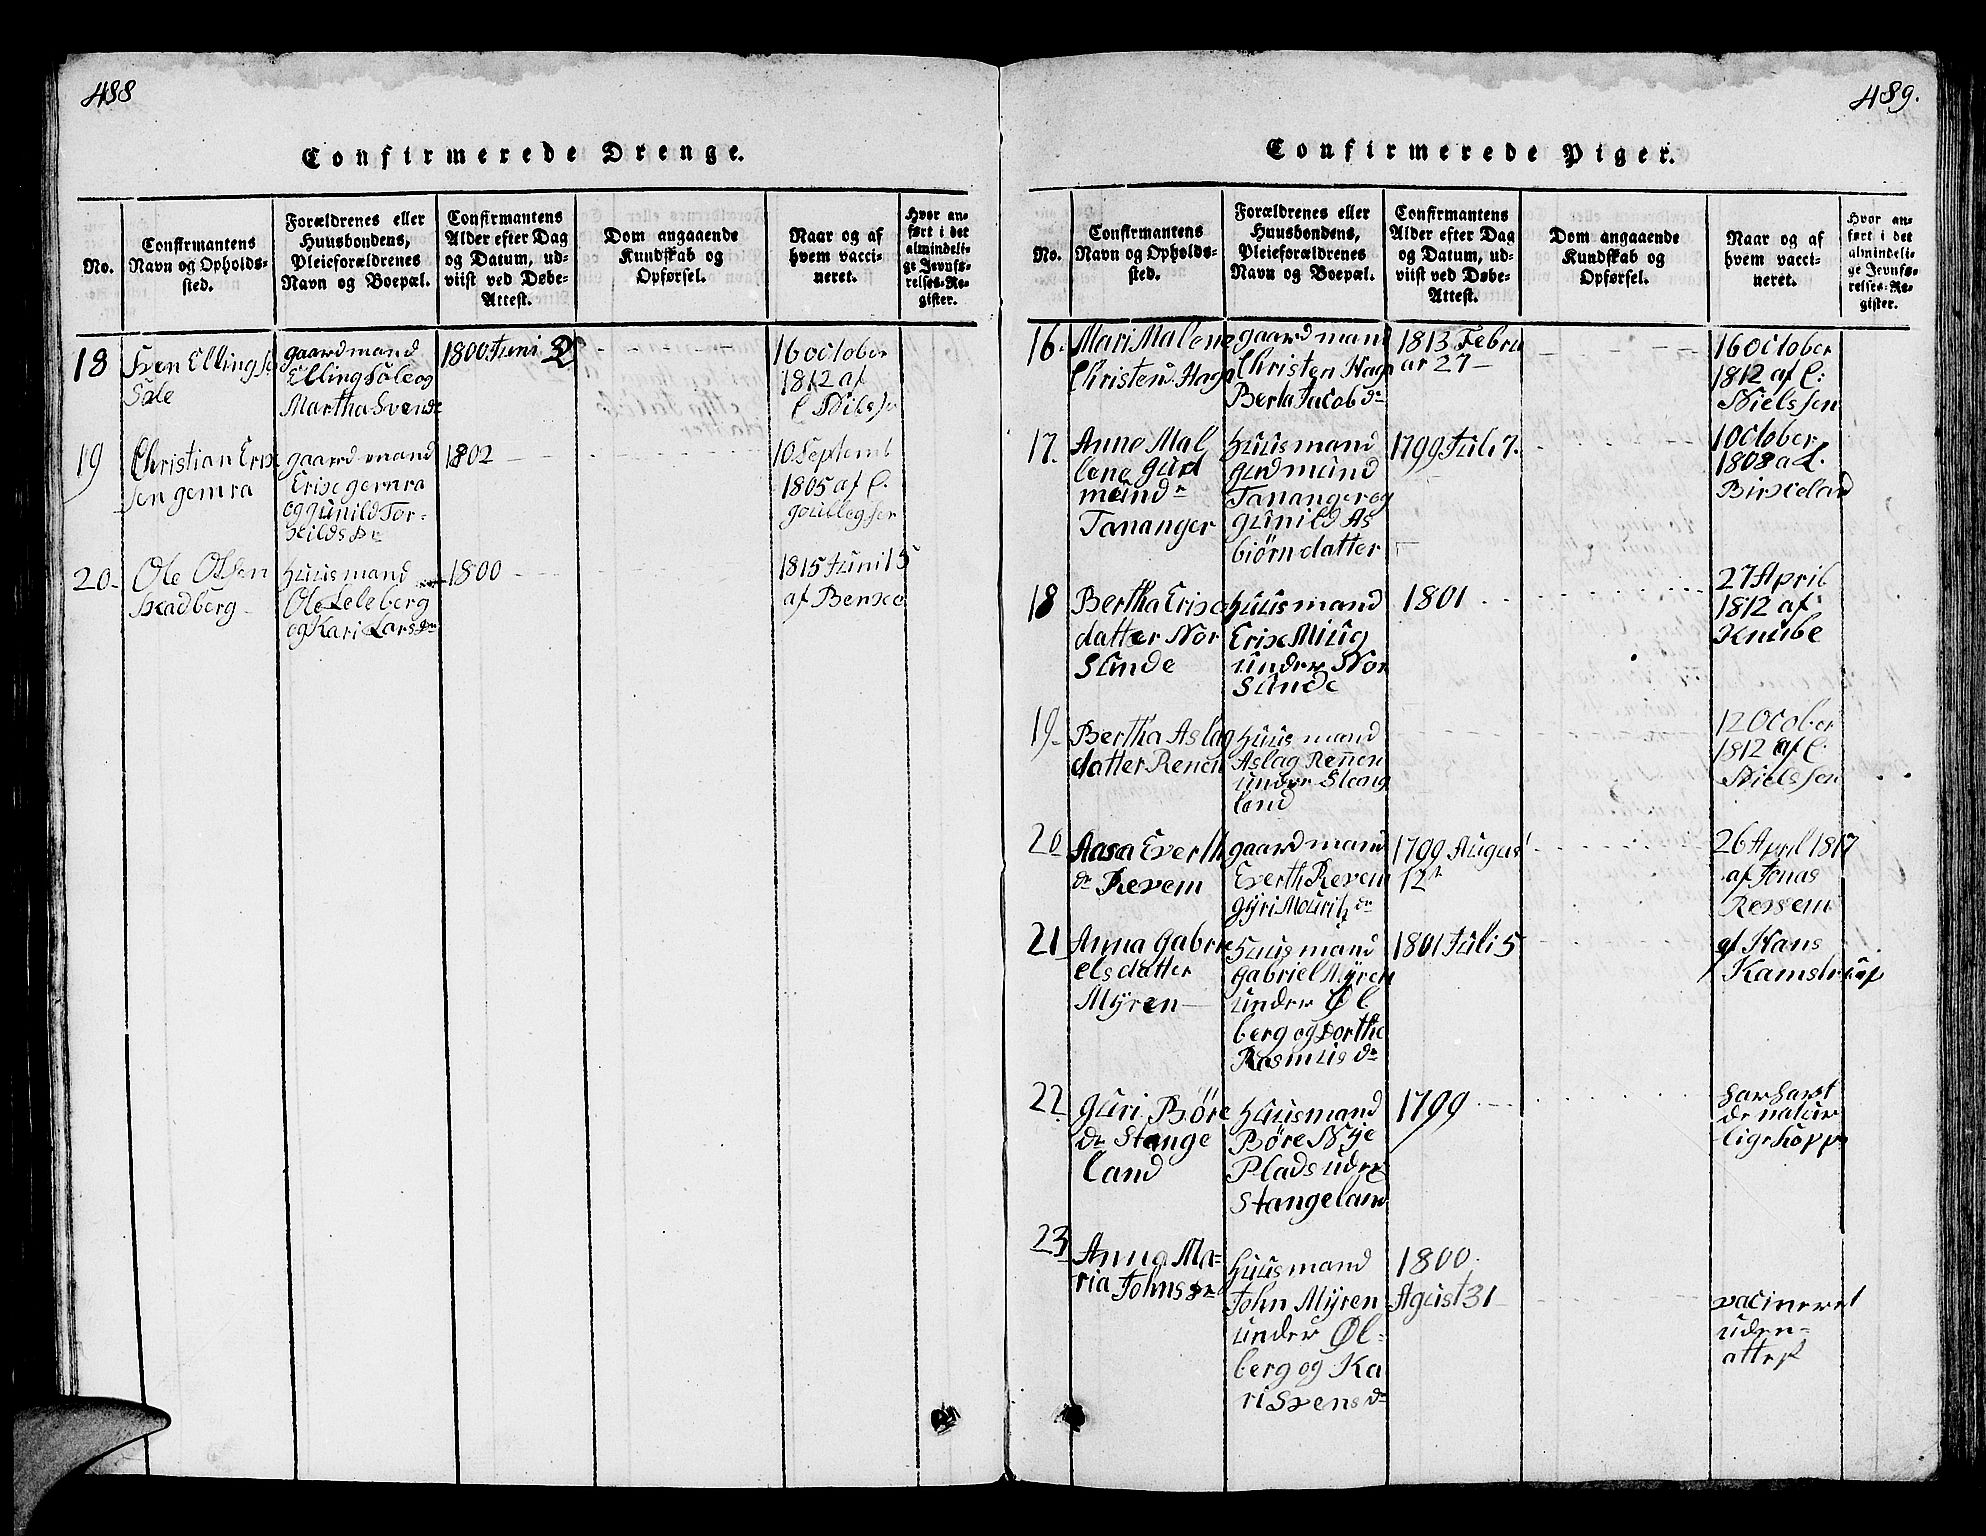 488
Confirmerede Drenge.
No.
Confirmantens
Navn og Opholds-
sted.
Forældrenes eller
Huusbondens,
Pleieforældrenes
Navn og Boepæl.
Confirmantens
Alder efter Dag
og Datum, ud-
viist ved Døbe-
Attest.
Dom angaaende
Kundskab og
Opførsel.
Naar og af
hvem vacci-
neret.
Hvor an-
ført i det
almindeli-
ge Jevnfø-
relses-Re-
gister.
18
Sven Ellings
Sole
gaardmand
Elling Sole og
Martha Svends
1800 Juni
16 october
1812 af
C Nielsse
19
Christian Erix
sen gemra
gaard mand
Erix gemra
og gunild Tor-
Keilds Dr
1802
10 Septemb
1805 af C.
20
Ole Olsen
Skadberg
Huusmand
Ole Leleberg
og Kari Lars Dr
1800
1815 Juni 15
af Benxe
489.
Confirmerede Piger.
No.
Confirmantens
Navn og Opholds-
sted.
Forældrenes eller
Huusbondens,
Pleieforældrenes
Navn og Boepæl.
Confirmantens
Alder efter Dag
og Datum, ud-
viist ved Døbe-
Attest.
Dom angaaende
Kundskab og
Opførsel.
Naar og af
hvem vacci-
neret.
Hvor an-
ført i det
almindeli-
ge Jevnfø-
relses-Re-
gister.
16
Mari Malene
Christens Haga
gaardmand
Christen Haga
Berta Jacob Dr
1813 Febru
ar 27
16 october
1812 af C:
Nielssen
17
Anne Mal
lene Gud
mund r
Tananger
Huusmand
Gudmund
Tananger og
gunild As
biørn datter
1799 Juli 7.
1 October
1808 af
Birxeland
18
Bertha Erix
datter Nor
Sunde
Huusmand
Erix Miug
under Nor
Sunde
1801
27 April
1812 af
Knube
19
Bertha Aslag
datter Renen
Huusmand
Aslag Rennen
under Stang
land
12 October
1812 af C.
Nielssen
20
Aasa Everth
Dr Revem
gaardmand
Everth Revem
gyri Mouritz Dr
1799 August
12
26 April 1817
af Jonas
Revem
21
Anna Gabri
elsdatter
Myren
Huusmand
Gabriel Myren
under Øl
berg og Dorthe
Rasmus Dr
1801 Juli 5
af Hans
Kamstrup
22
Guri Böre
Dr Stange
land
Huusmand
Böre Nye
Plads under
Stangeland
1799
har havt
de natur
lige kopper
23
Anna Ma-
ria Johns Dr
Huusmand
John Myren
under Øl-
berg og Ka
ri Svens Dr
1800
Agust 31
vacineret
uden-
attest